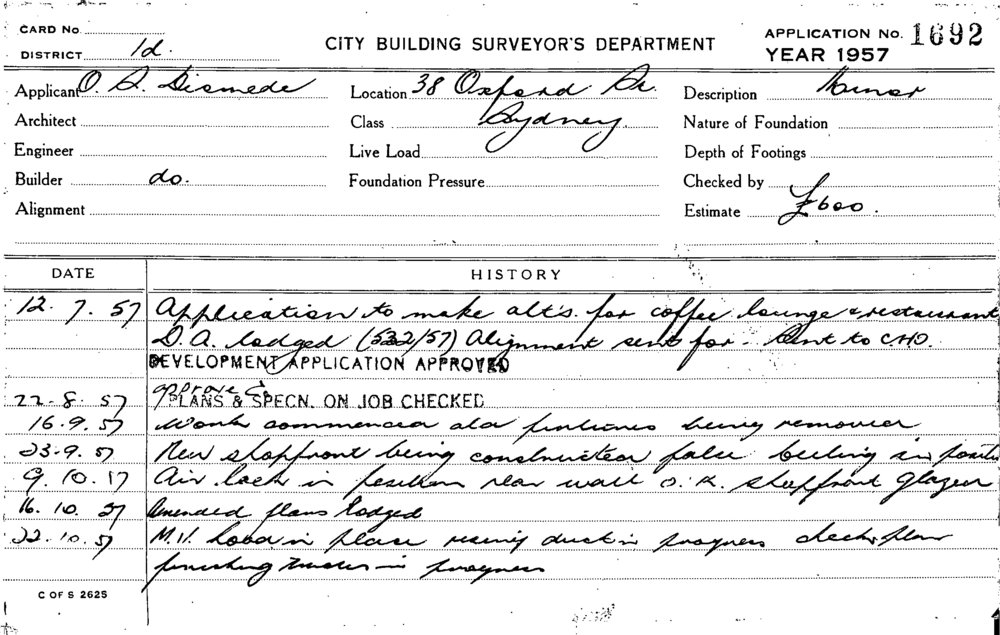 CARD No.
DISTRICT 1d.
CITY BUILDING SURVEYOR'S DEPARTMENT
APPLICATION No. 1692
YEAR 1957
Applicant O. A. Diomede
Location 38 Oxford St.
Description Minor
Architect
Class Sydney.
Nature of Foundation
Engineer
Live Load
Depth of Footings
Builder do.
Foundation Pressure
Checked by
Alignment
Estimate £600.
DATE HISTORY
12.7.57 Application to make alt's. for coffee lounge & restaurant
D.A. lodged (532/57) Alignment sent for - Sent to CHO.
DEVELOPMENT APPLICATION APPROVED
approve
22-8.57 PLANS & SPECN. ON JOB CHECKED
16.9.57 Work commenced old fixtures being removed
23.9.57 New shopfront being constructed false ceiling in position
9.10.57 Air lock in position rear wall O.K. shopfront glazed
16.10.57 Amended plans lodged
22.10.57 M.V. hood in place rising duct in progress check plan
finishing trades in progress
C OF S 2625